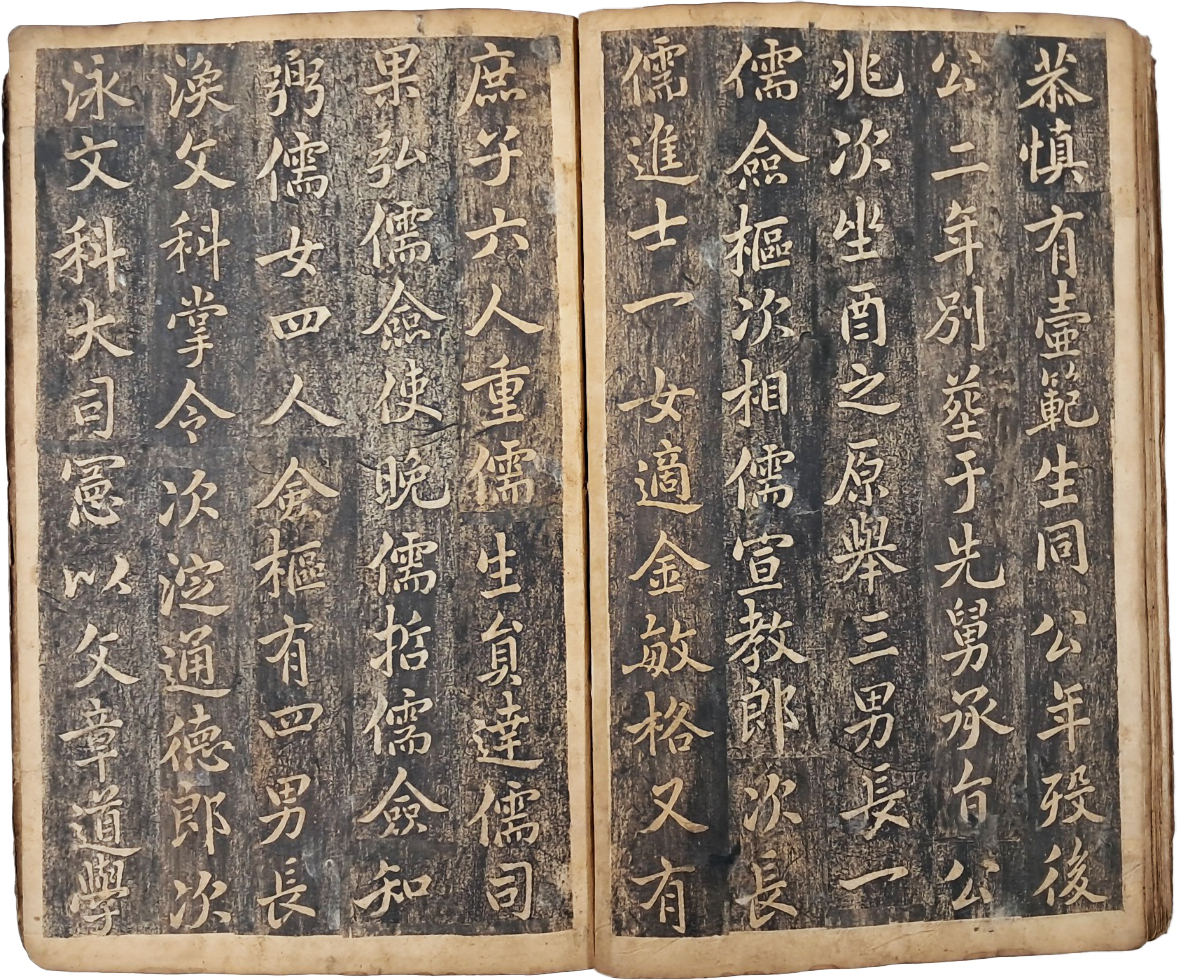 恭慎有壼範生同公年歿後
公二年別葬于先舅承旨公
兆次坐酉之原舉三男長一
儒僉樞次相儒宣教郎次長
儒進士一女適金敏格又有
庶子六人重儒生員達儒司
果弘儒僉使晚儒哲儒僉知
弼儒女四人僉樞有四男長
渙文科掌令次淀通德郎次
泳文科大司憲以文章道學